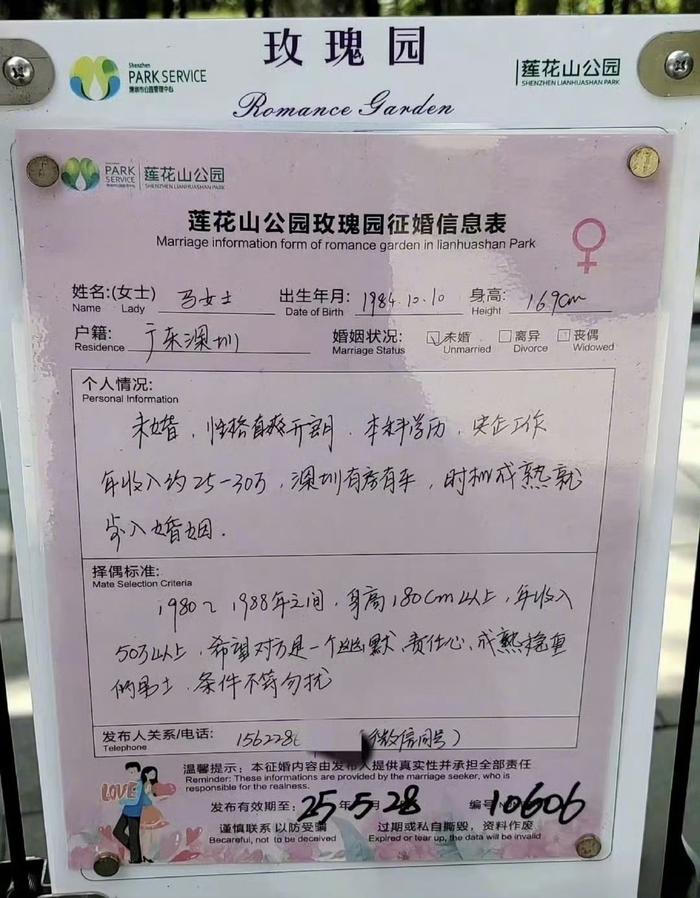 玫瑰园
Shenzhen
PARK SERVICE
深圳市公园管理中心
莲花山公园
SHENZHEN LIANHUASHAN PARK
Romance Garden
PARK
SERVICE
莲花山公园
SHENZHEN LIANHUASHAN PARK
莲花山公园玫瑰园征婚信息表
Marriage information form of romance garden in lianhuashan Park
姓名:(女士) 马女士 出生年月: 1984.10.10 身高: 169cm
Name Lady Date of Birth Height
户籍: 广东深圳 婚姻状况: ☑未婚 □离异 □丧偶
Residence Marriage Status Unmarried Divorce Widowed
个人情况:
Personal Information
未婚，性格直爽开朗．本科学历，央企工作
年收入约25-30万，深圳有房有车，时机成熟就
步入婚姻．
择偶标准:
Mate Selection Criteria
1980~1988年之间，身高180cm以上，年收入
50万以上，希望对方是一个幽默、责任心、成熟稳重
的男士，条件不符勿扰
发布人关系/电话: 156228 (微信同号)
Telephone
温馨提示：本征婚内容由发布人提供真实性并承担全部责任
Reminder: These informations are provided by the marriage seeker, who is
responsible for the realness.
LOVE
发布有效期至: 25年5 28 编号 10606
谨慎联系 以防受骗 过期或私自撕毁，资料作废
Becareful, not to be deceived Expired or tear up, the data will be invalid